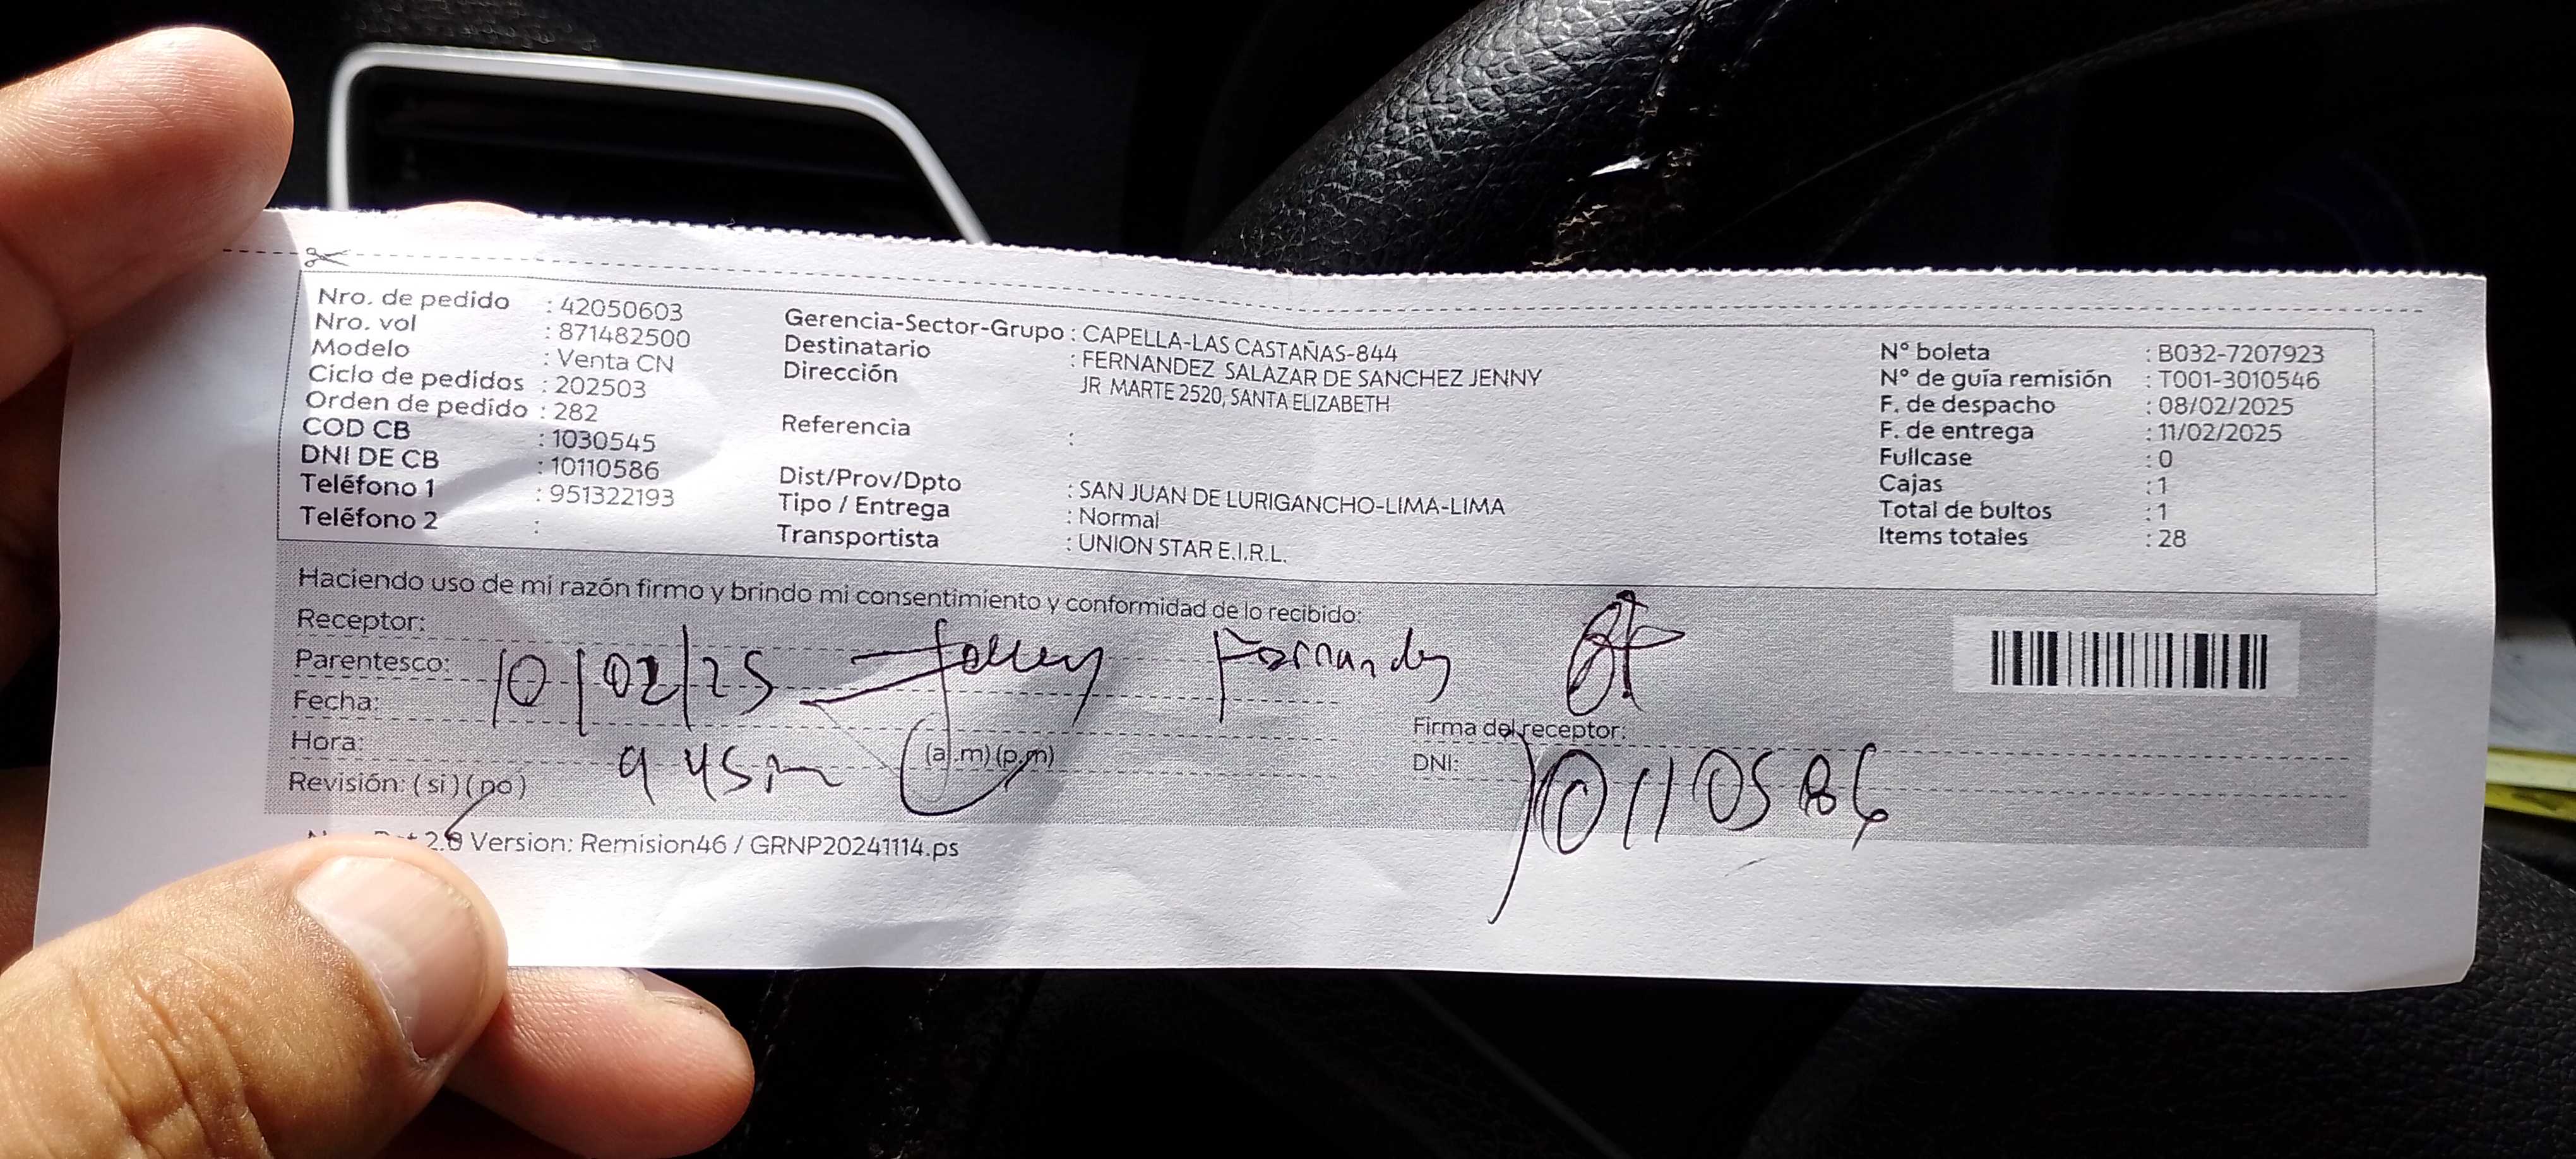 Nro. de pedido : 42050603
Nro. vol : 871482500
Modelo : Venta CN
Ciclo de pedidos : 202503
Orden de pedido : 282
COD CB : 1030545
DNI DE CB : 10110586
Teléfono 1 : 951322193
Teléfono 2 :
Gerencia-Sector-Grupo : CAPELLA-LAS CASTAÑAS-844
Destinatario : FERNANDEZ SALAZAR DE SANCHEZ JENNY
Dirección JR MARTE 2520, SANTA ELIZABETH
Referencia :
Dist/Prov/Dpto : SAN JUAN DE LURIGANCHO-LIMA-LIMA
Tipo / Entrega : Normal
Transportista : UNION STAR E.I.R.L.
N° boleta : B032-7207923
N° de guía remisión : T001-3010546
F. de despacho : 08/02/2025
F. de entrega : 11/02/2025
Fullcase : 0
Cajas : 1
Total de bultos : 1
Items totales : 28
Haciendo uso de mi razón firmo y brindo mi consentimiento y conformidad de lo recibido:
Receptor:
Parentesco: 10/02/25
Fecha:
Hora: 9 45 (a.m) (p.m)
Revisión: (si) (no)
Firma del receptor:
DNI: 10110586
Version: Remision46 / GRNP20241114.ps